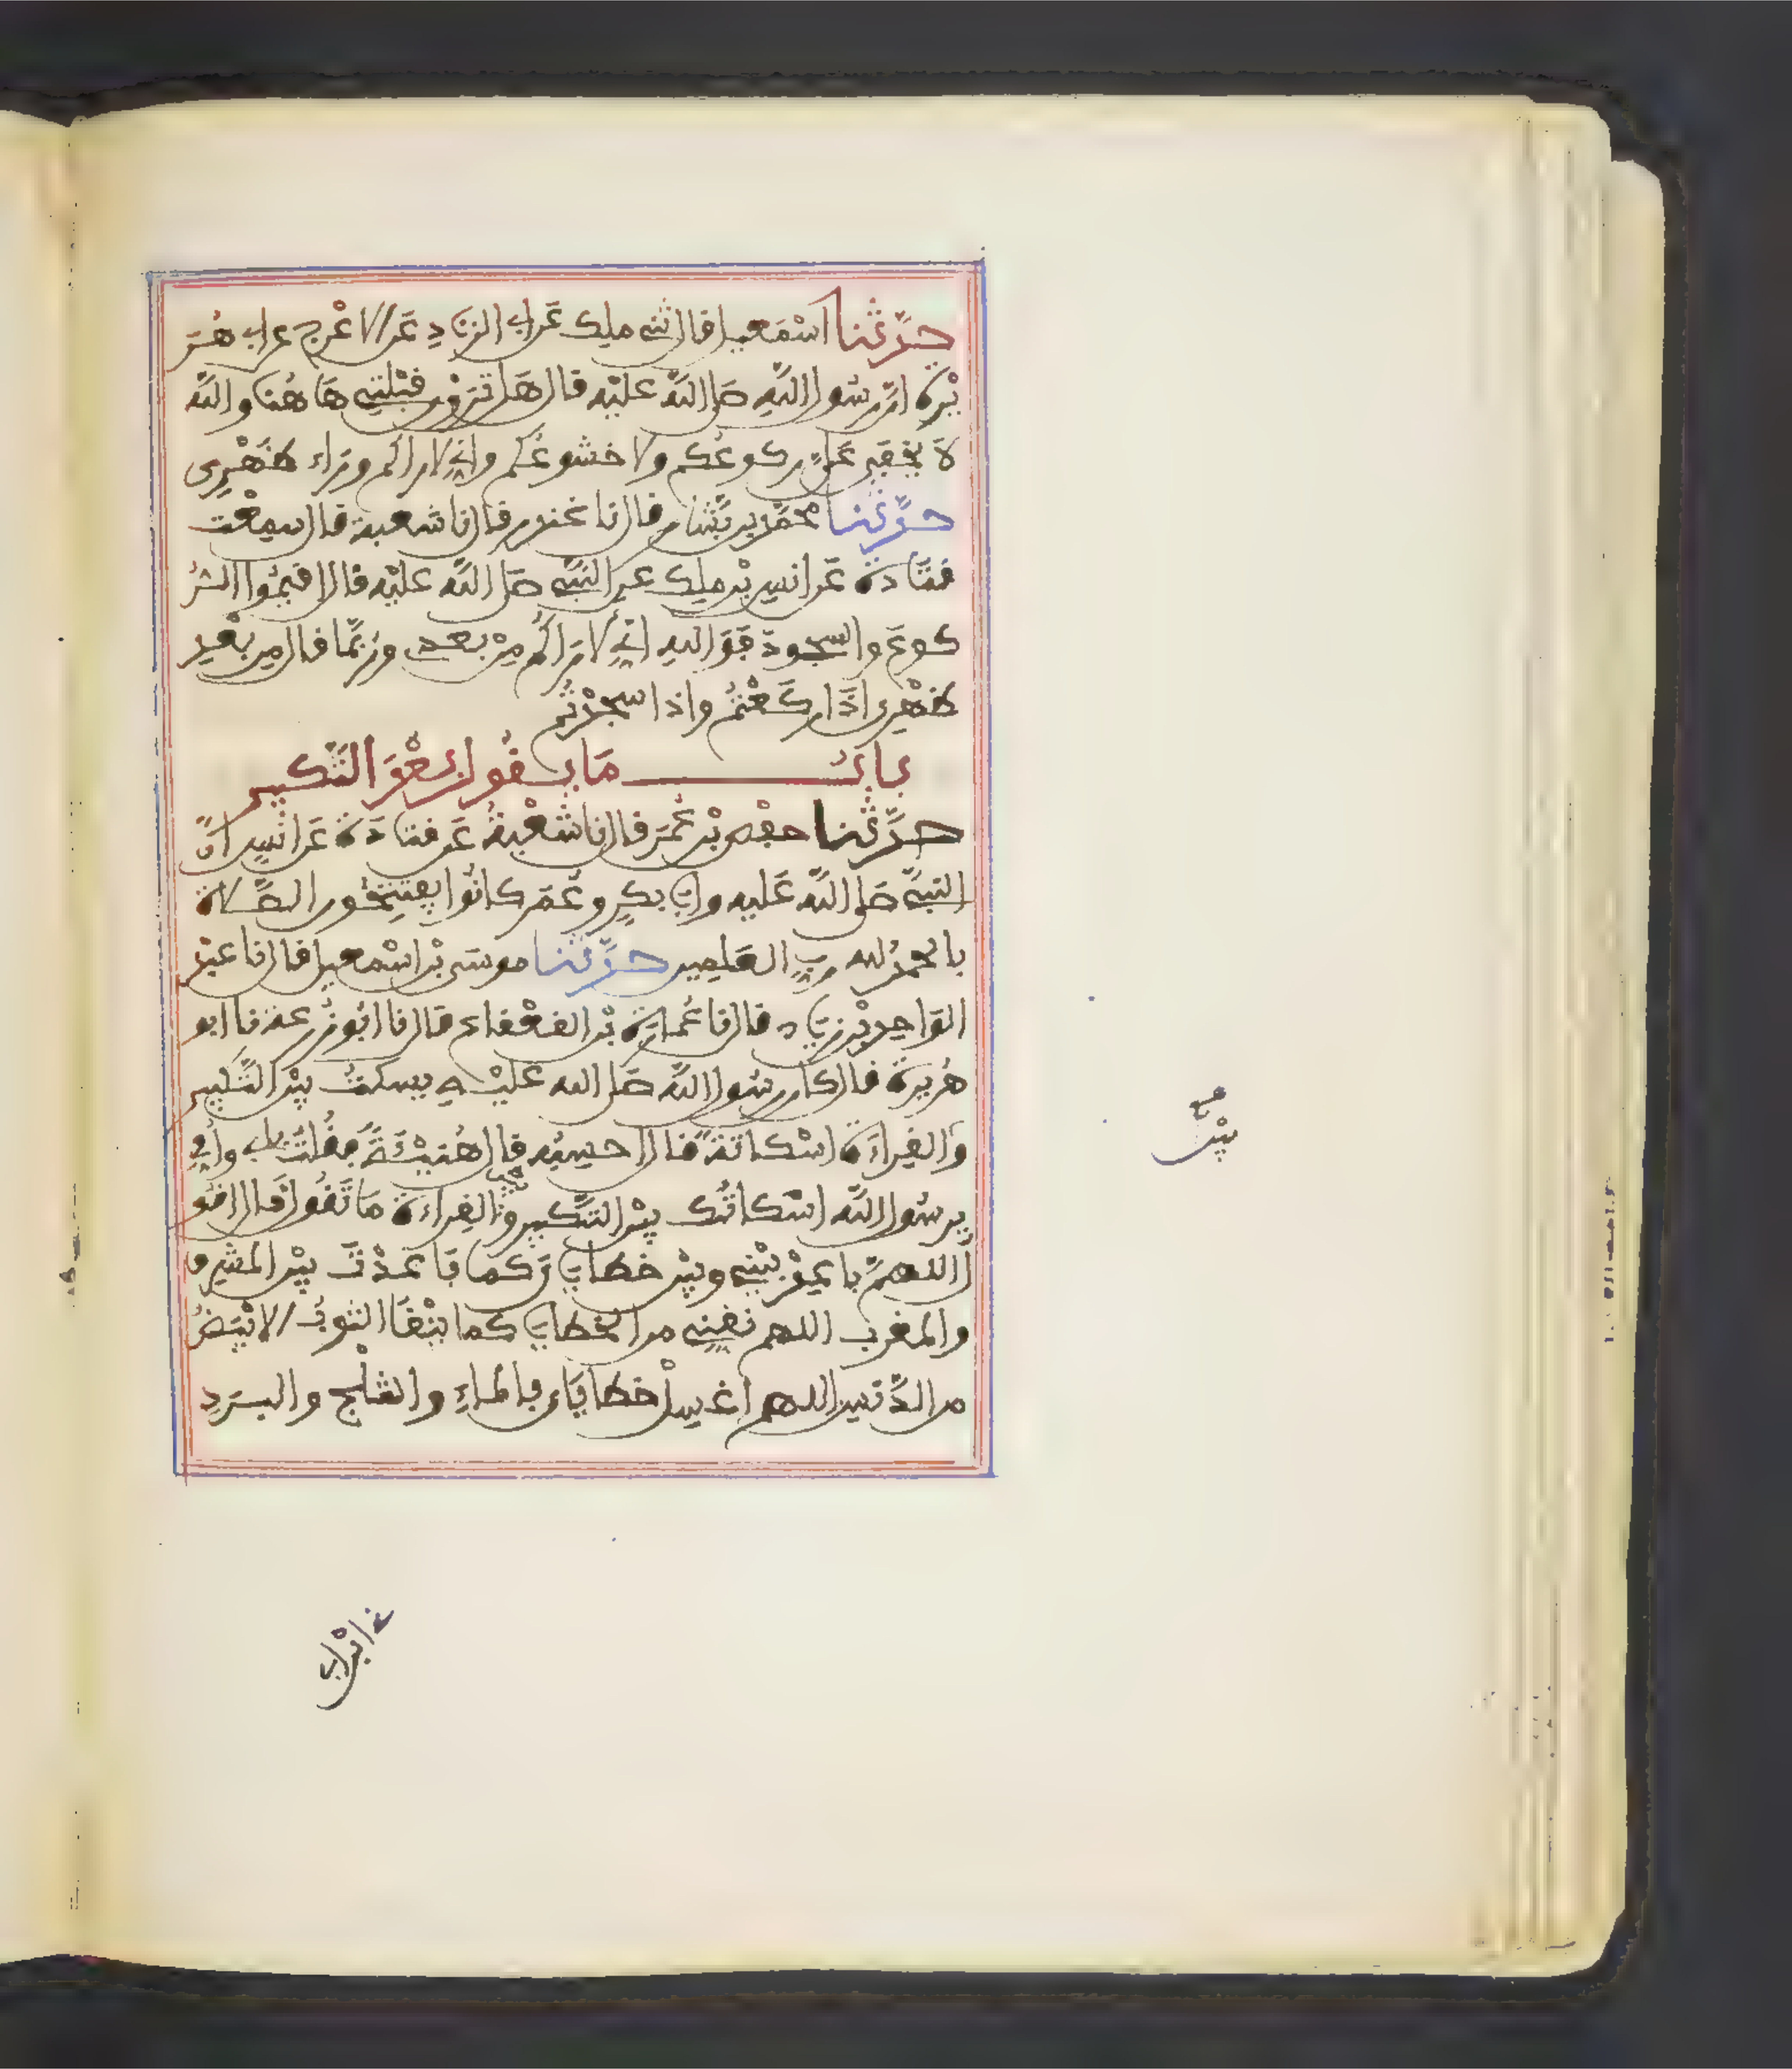 حدثنا اسمعيل قال ثنى ملك عن ابى الزناد عن الاعرج عن ابى هر
يرة ان رسول الله صلى الله عليه قال هل ترون قبلتى هاهنا والله
لا يخفى على ركوعكم ولا خشوعكم وانى لاراكم وراء ظهرى
حدثنا محمد بن بشار قال نا غندر قال نا شعبة قال سمعت
قتادة عن انس بن ملك عن النبى صلى الله عليه قال اقيموا الر
كوع والسجود فوالله انى لاراكم من بعدى وربما قال من بعد
ظهرى اذا ركعتم واذا سجدتم
باب ما يقول بعد التكبير
حدثنا حفص بن عمر قال نا شعبة عن قتادة عن انس ان
النبى صلى الله عليه وابى بكر وعمر كانوا يفتتحون الصلاة
بالحمد لله رب العلمين حدثنا موسى بن اسمعيل قال نا عبد
الواحد بن زياد قال نا عمارة بن القعقاع قال نا ابو زرعة نا ابو
هريرة قال كان رسول الله صلى الله عليه يسكت بين التكبير
والقراءة اسكاتة قال احسبه قال هنيئة فقلت بابى وامى
يرسول الله اسكاتك بين التكبير والقراءة ما تقول قال اقو
ل اللهم باعد بينى وبين خطاياى كما باعدت بين المشرق
والمغرب اللهم نقنى من الخطايا كما ينقا الثوب الابيض
من الدنس اللهم اغسل خطاياى بالماء والثلج والبرد
بين